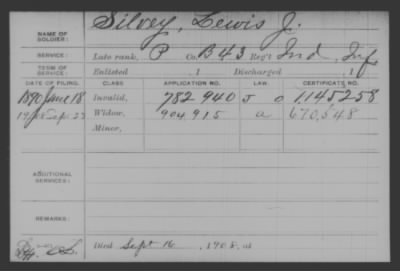 NAME OF SOLDIER: Silvey, Lewis J.
SERVICE: Late rank, P Co. B 43 Reg't Ind. Inf
TERM OF SERVICE: Enlisted , 1 Discharged , 1
DATE OF FILING. CLASS. APPLICATION NO. LAW. CERTIFICATE NO.
1890 June 18 Invalid, 782 940 J O 1145258
1908 Sep. 23 Widow, 904 915 a 670,548
Minor,
ADDITIONAL SERVICES:
REMARKS:
Died Sept 16, 1908, at